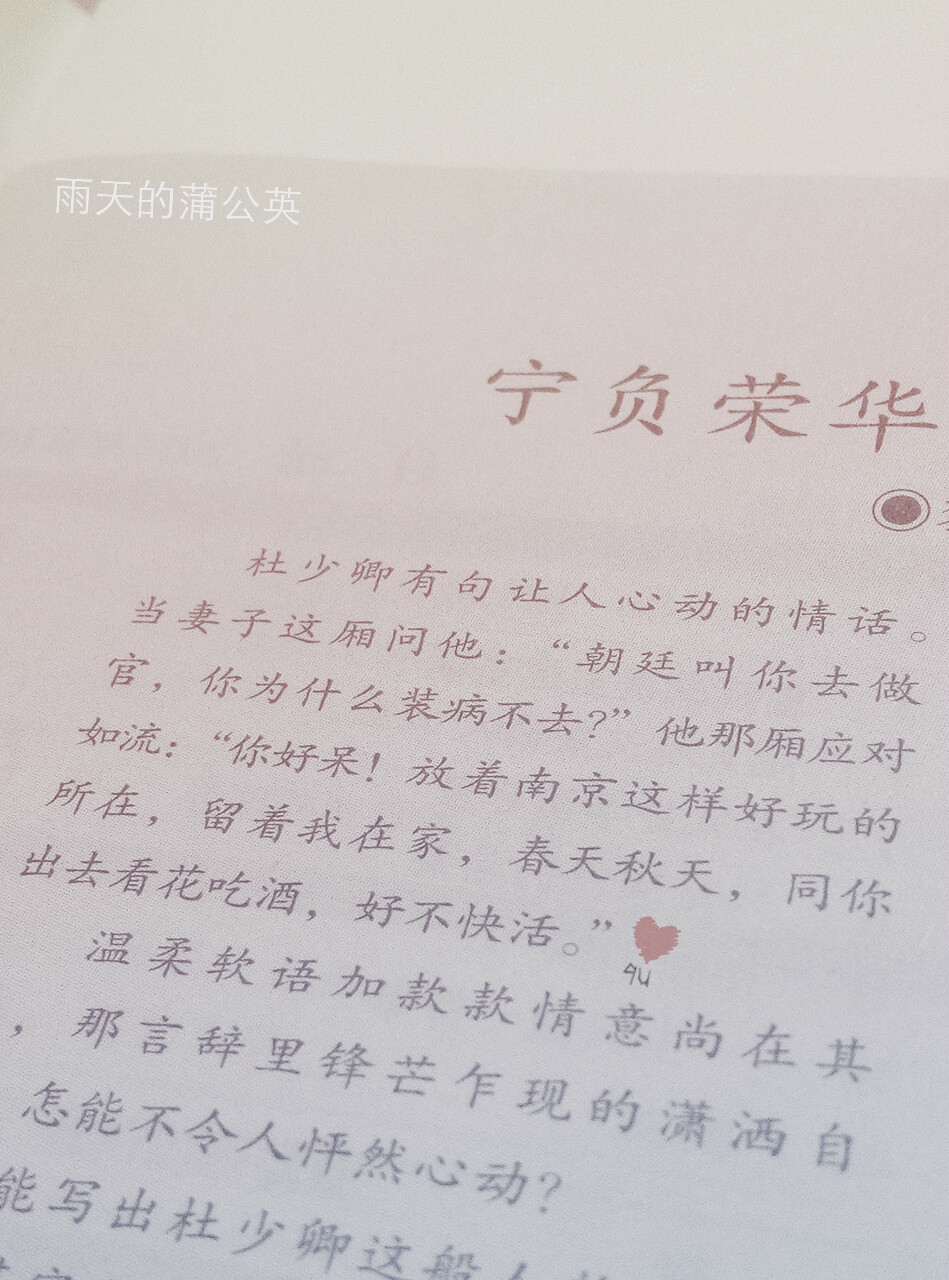 雨天的蒲公英
宁负荣华
杜少卿有句让人心动的情话。
当妻子这厢问他：“朝廷叫你去做
官，你为什么装病不去?”他那厢应对
如流：“你好呆！放着南京这样好玩的
所在，留着我在家，春天秋天，同你
出去看花吃酒，好不快活。”
4U
温柔软语加款款情意尚在其
，那言辞里锋芒乍现的潇洒自
怎能不令人怦然心动?
能写出杜少卿这般人